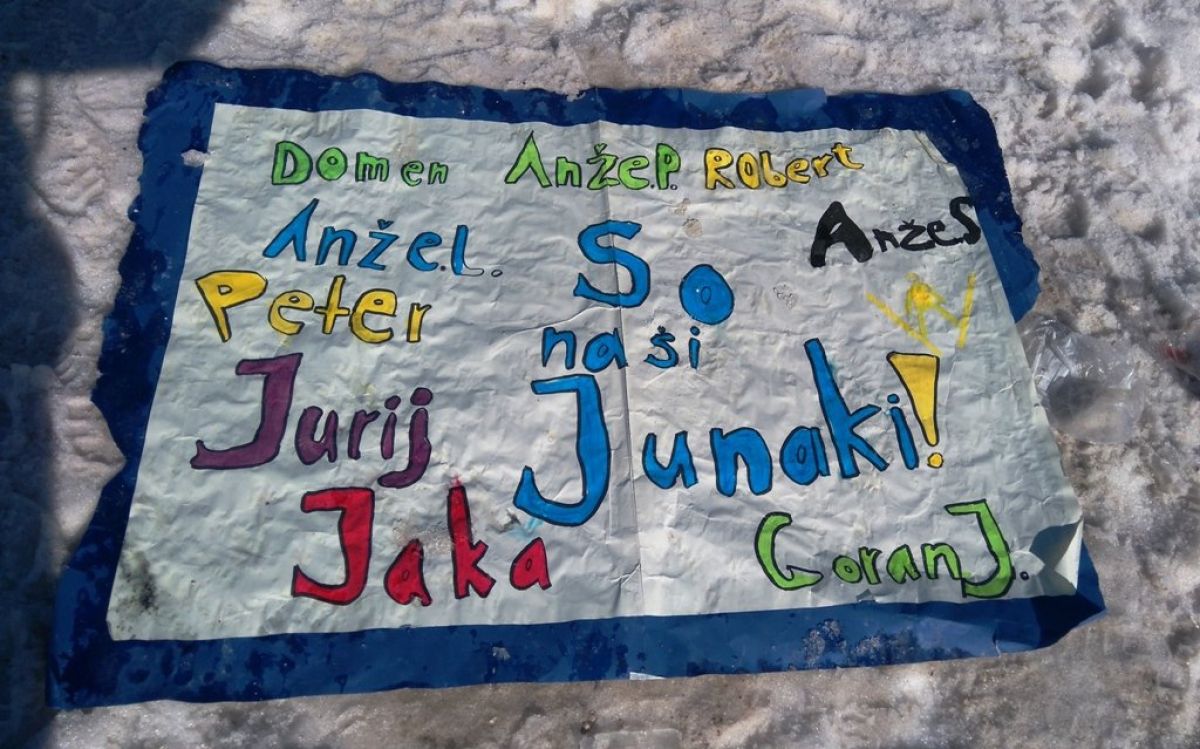 Domen Anže.P. Robert
Anže.L. So AnžeS
Peter naši
Jurij Junaki!
Jaka Goran J.